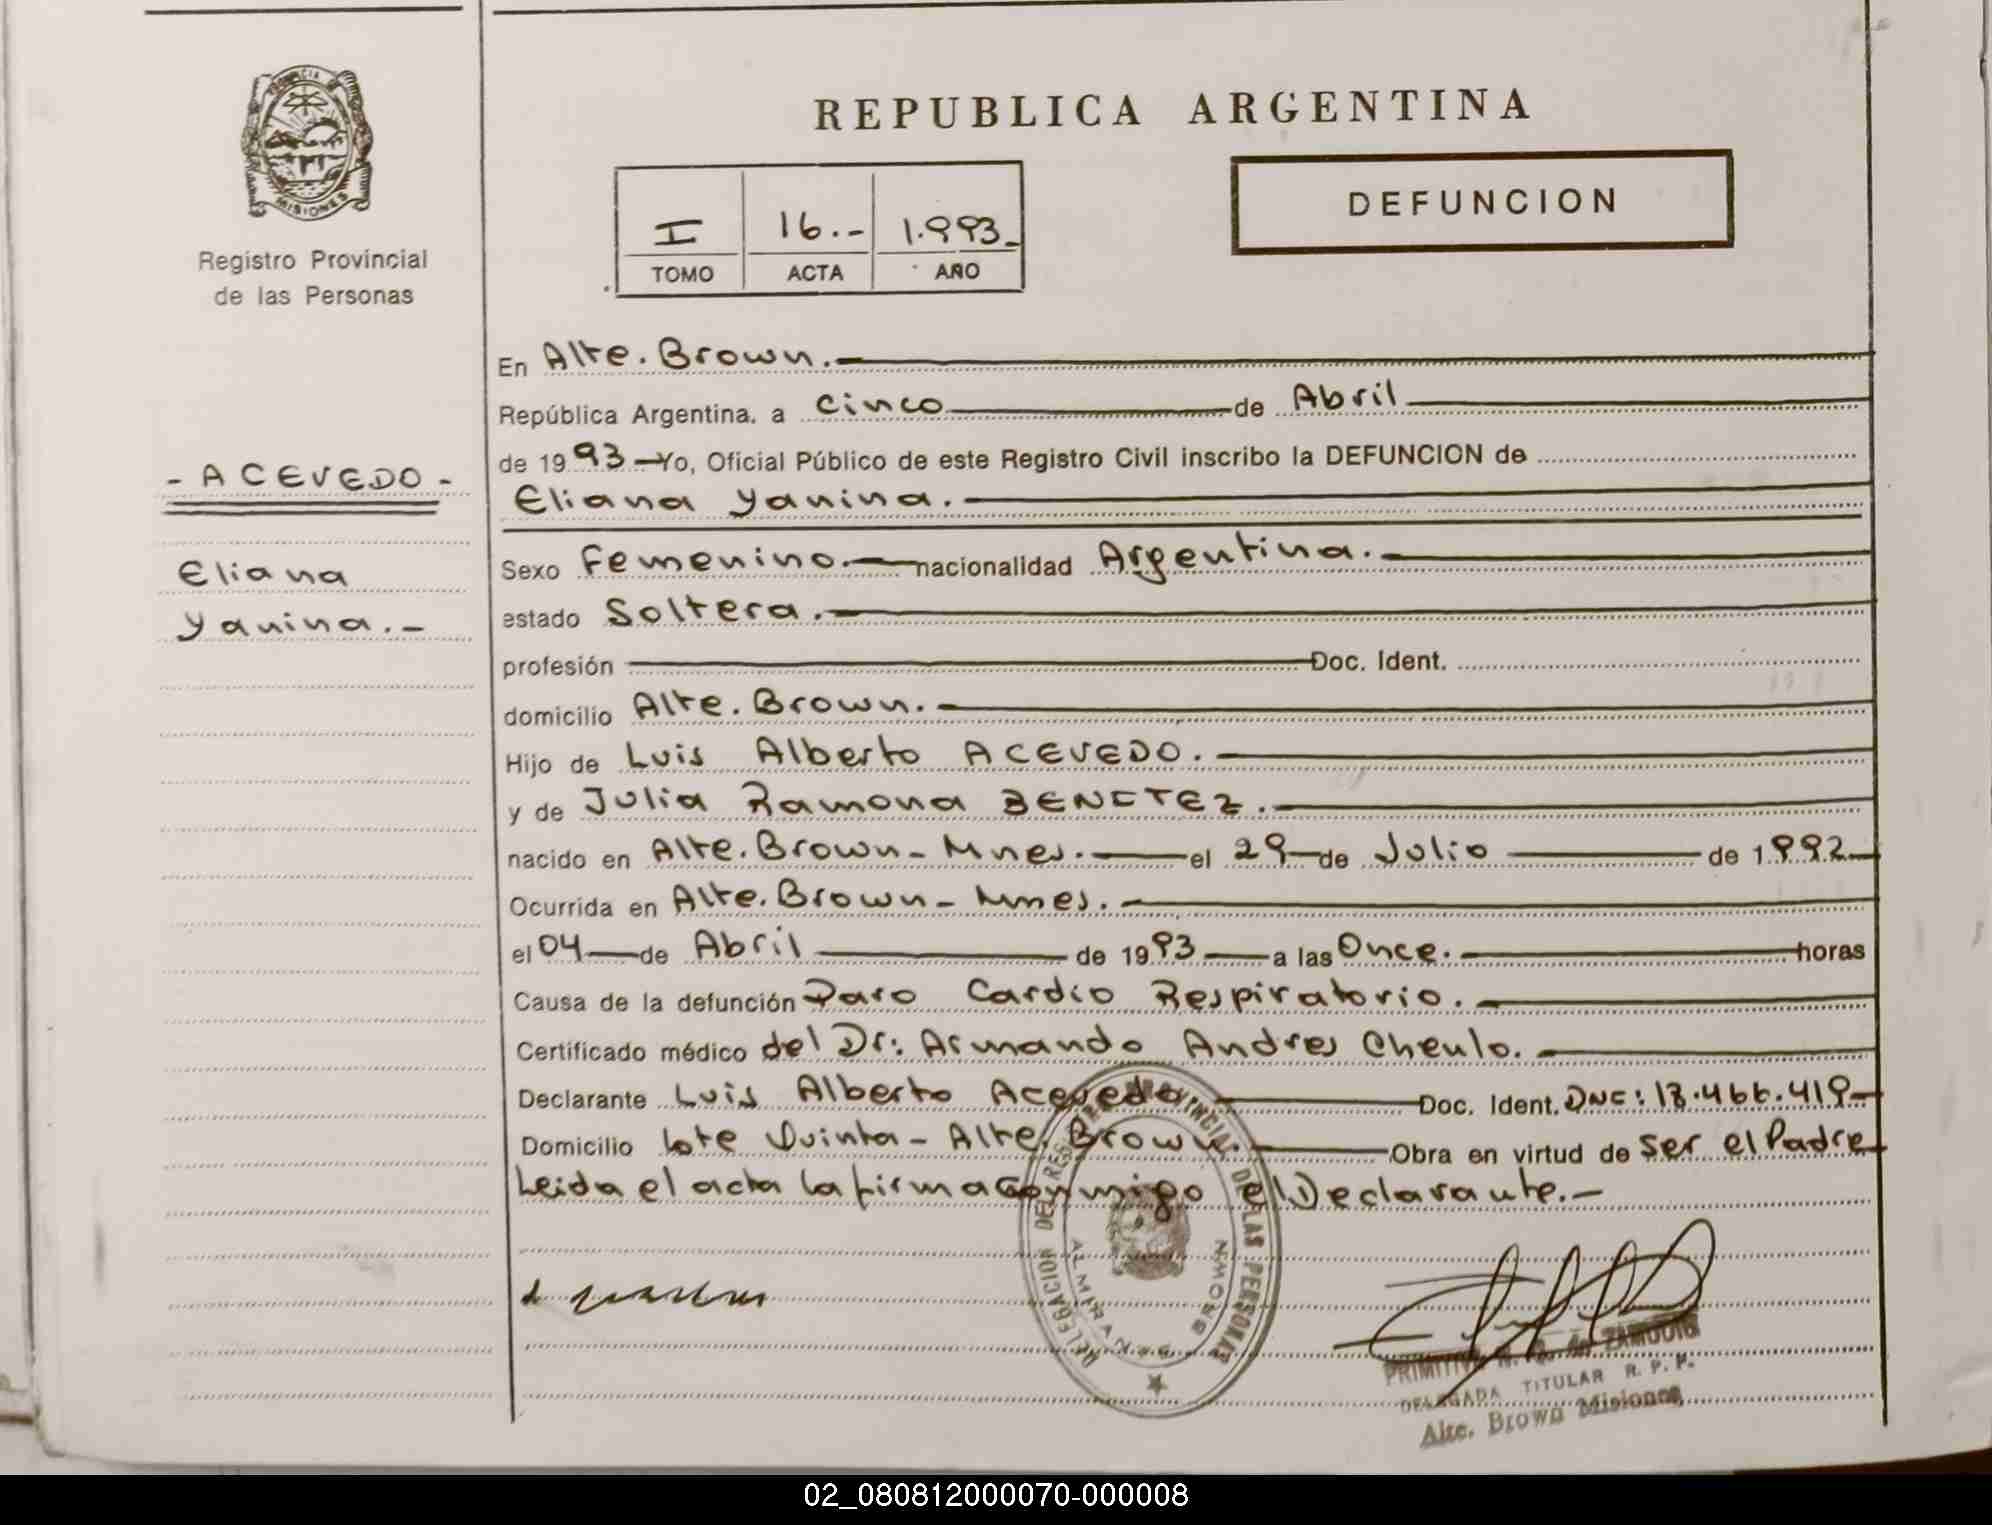 PROVINCIA DE
MISIONES
Registro Provincial
de las Personas
- ACEVEDO -
Eliana
Yanina.-
REPUBLICA ARGENTINA
I 16.- 1.993-
TOMO ACTA AÑO
DEFUNCION
En Alte. Brown.-
República Argentina, a cinco de Abril
de 1993 Yo, Oficial Público de este Registro Civil inscribo la DEFUNCION de
Eliana Yanina.-
Sexo Femenino.- nacionalidad Argentina.-
estado Soltera.-
profesión Doc. Ident.
domicilio Alte. Brown.-
Hijo de Luis Alberto ACEVEDO.-
y de Julia Ramona BENITEZ.-
nacido en Alte. Brown - Mnes.- el 29 de Julio de 1992
Ocurrida en Alte. Brown - Mnes.-
el 04 de Abril de 1993 a las Once. horas
Causa de la defunción Paro Cardio Respiratorio.-
Certificado médico del Dr: Armando Andres Cheulo.-
Declarante Luis Alberto Acevedo Doc. Ident. DNI: 18.466.419-
Domicilio lote Quinta - Alte. Brown Obra en virtud de ser el Padre
Leida el acta la firma conmigo el Declarante.-
DELEGACION DEL REGISTRO PROVINCIAL DE LAS PERSONAS
ALMIRANTE BROWN
ZAMUDIO
DELEGADA TITULAR R. P. P.
Alte. Brown Misiones
02_080812000070-000008